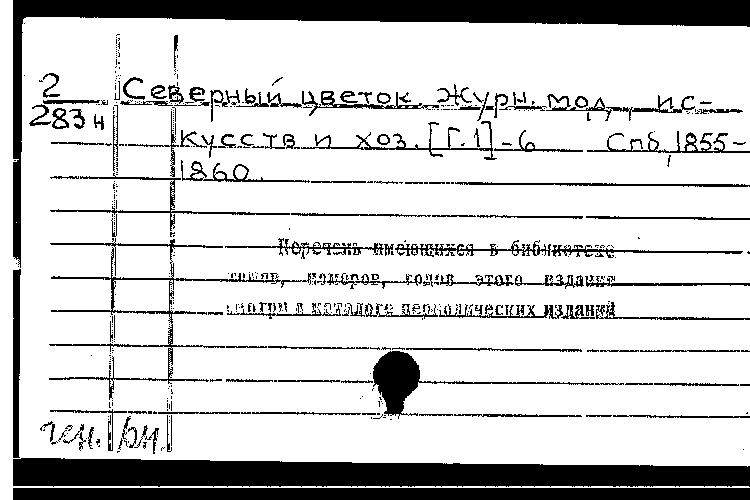 2
283н
Северный цветок. Журн. мод, ис-
кусств и хоз. [Г. 1]-6 Спб, 1855-
1860.
Перечень имеющихся в библиотеке
томов, номеров, годов этого издания
смотри в каталоге периодических изданий
ген.